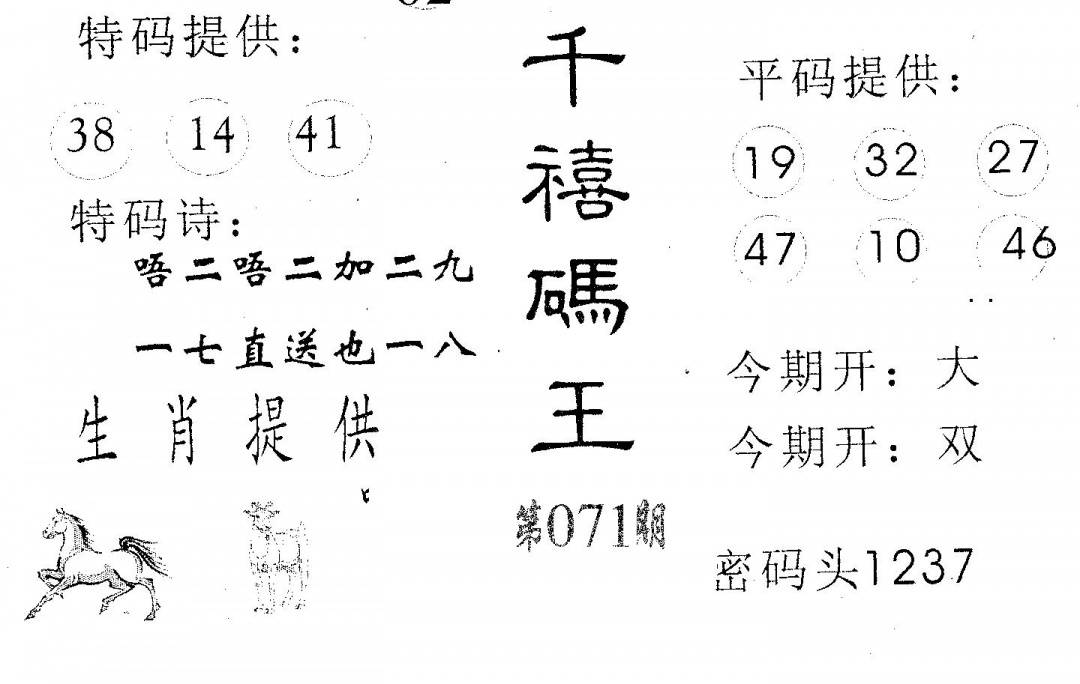 特码提供：
38 14 41
特码诗：
唔二唔二加二九
一七直送也一八
生肖提供
千
禧
碼
王
第071期
平码提供：
19 32 27
47 10 46
今期开：大
今期开：双
密码头1237